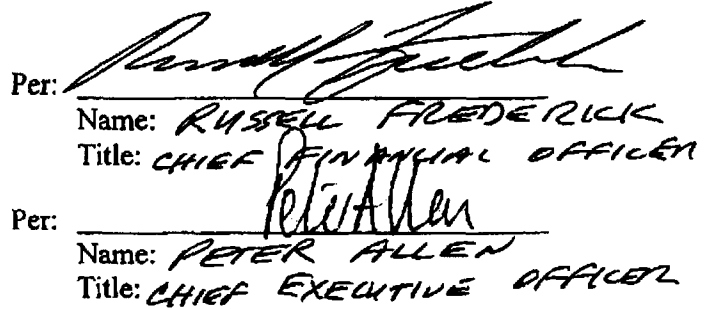 Per: Russell Frederick
Name: RUSSELL FREDERICK
Title: CHIEF FINANCIAL OFFICER
Per: Peter Allen
Name: PETER ALLEN
Title: CHIEF EXECUTIVE OFFICER